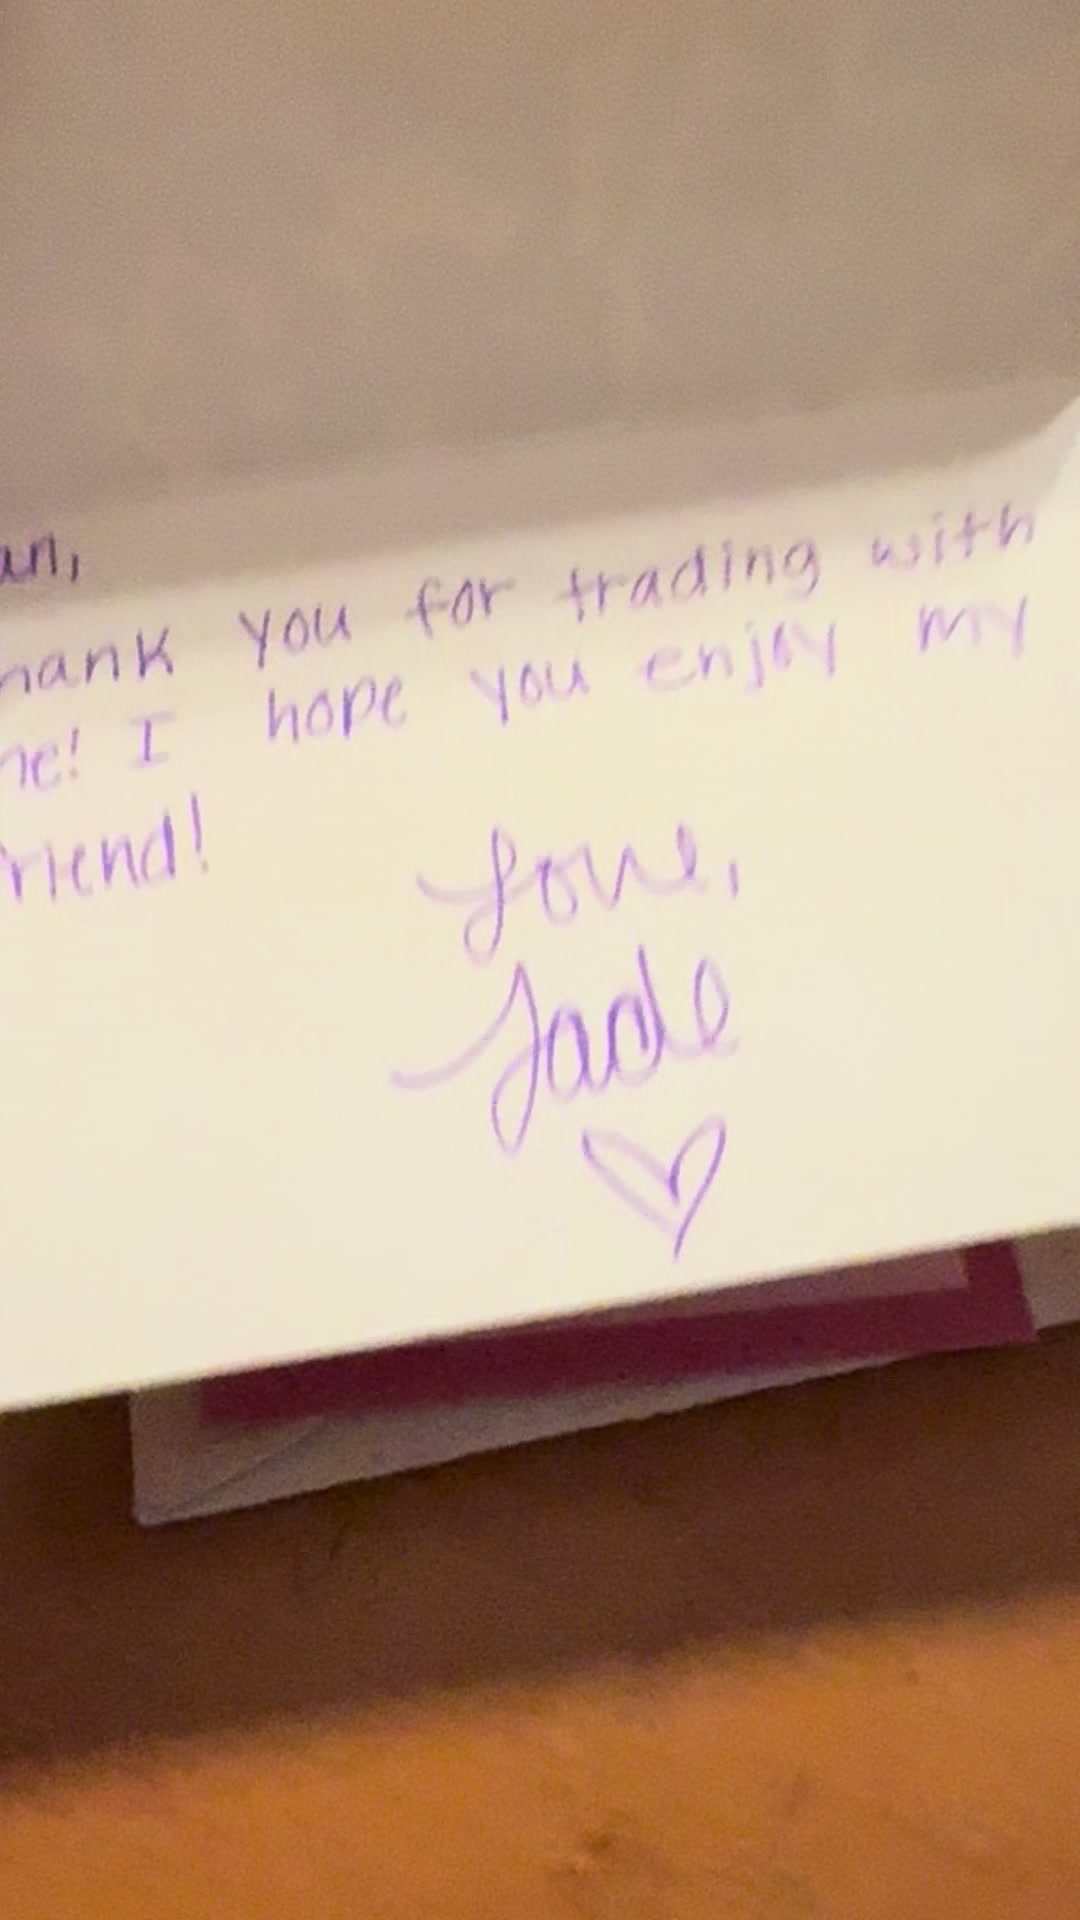 an,
hank you for trading with
me! I hope you enjoy my
friend!
Love,
Jade